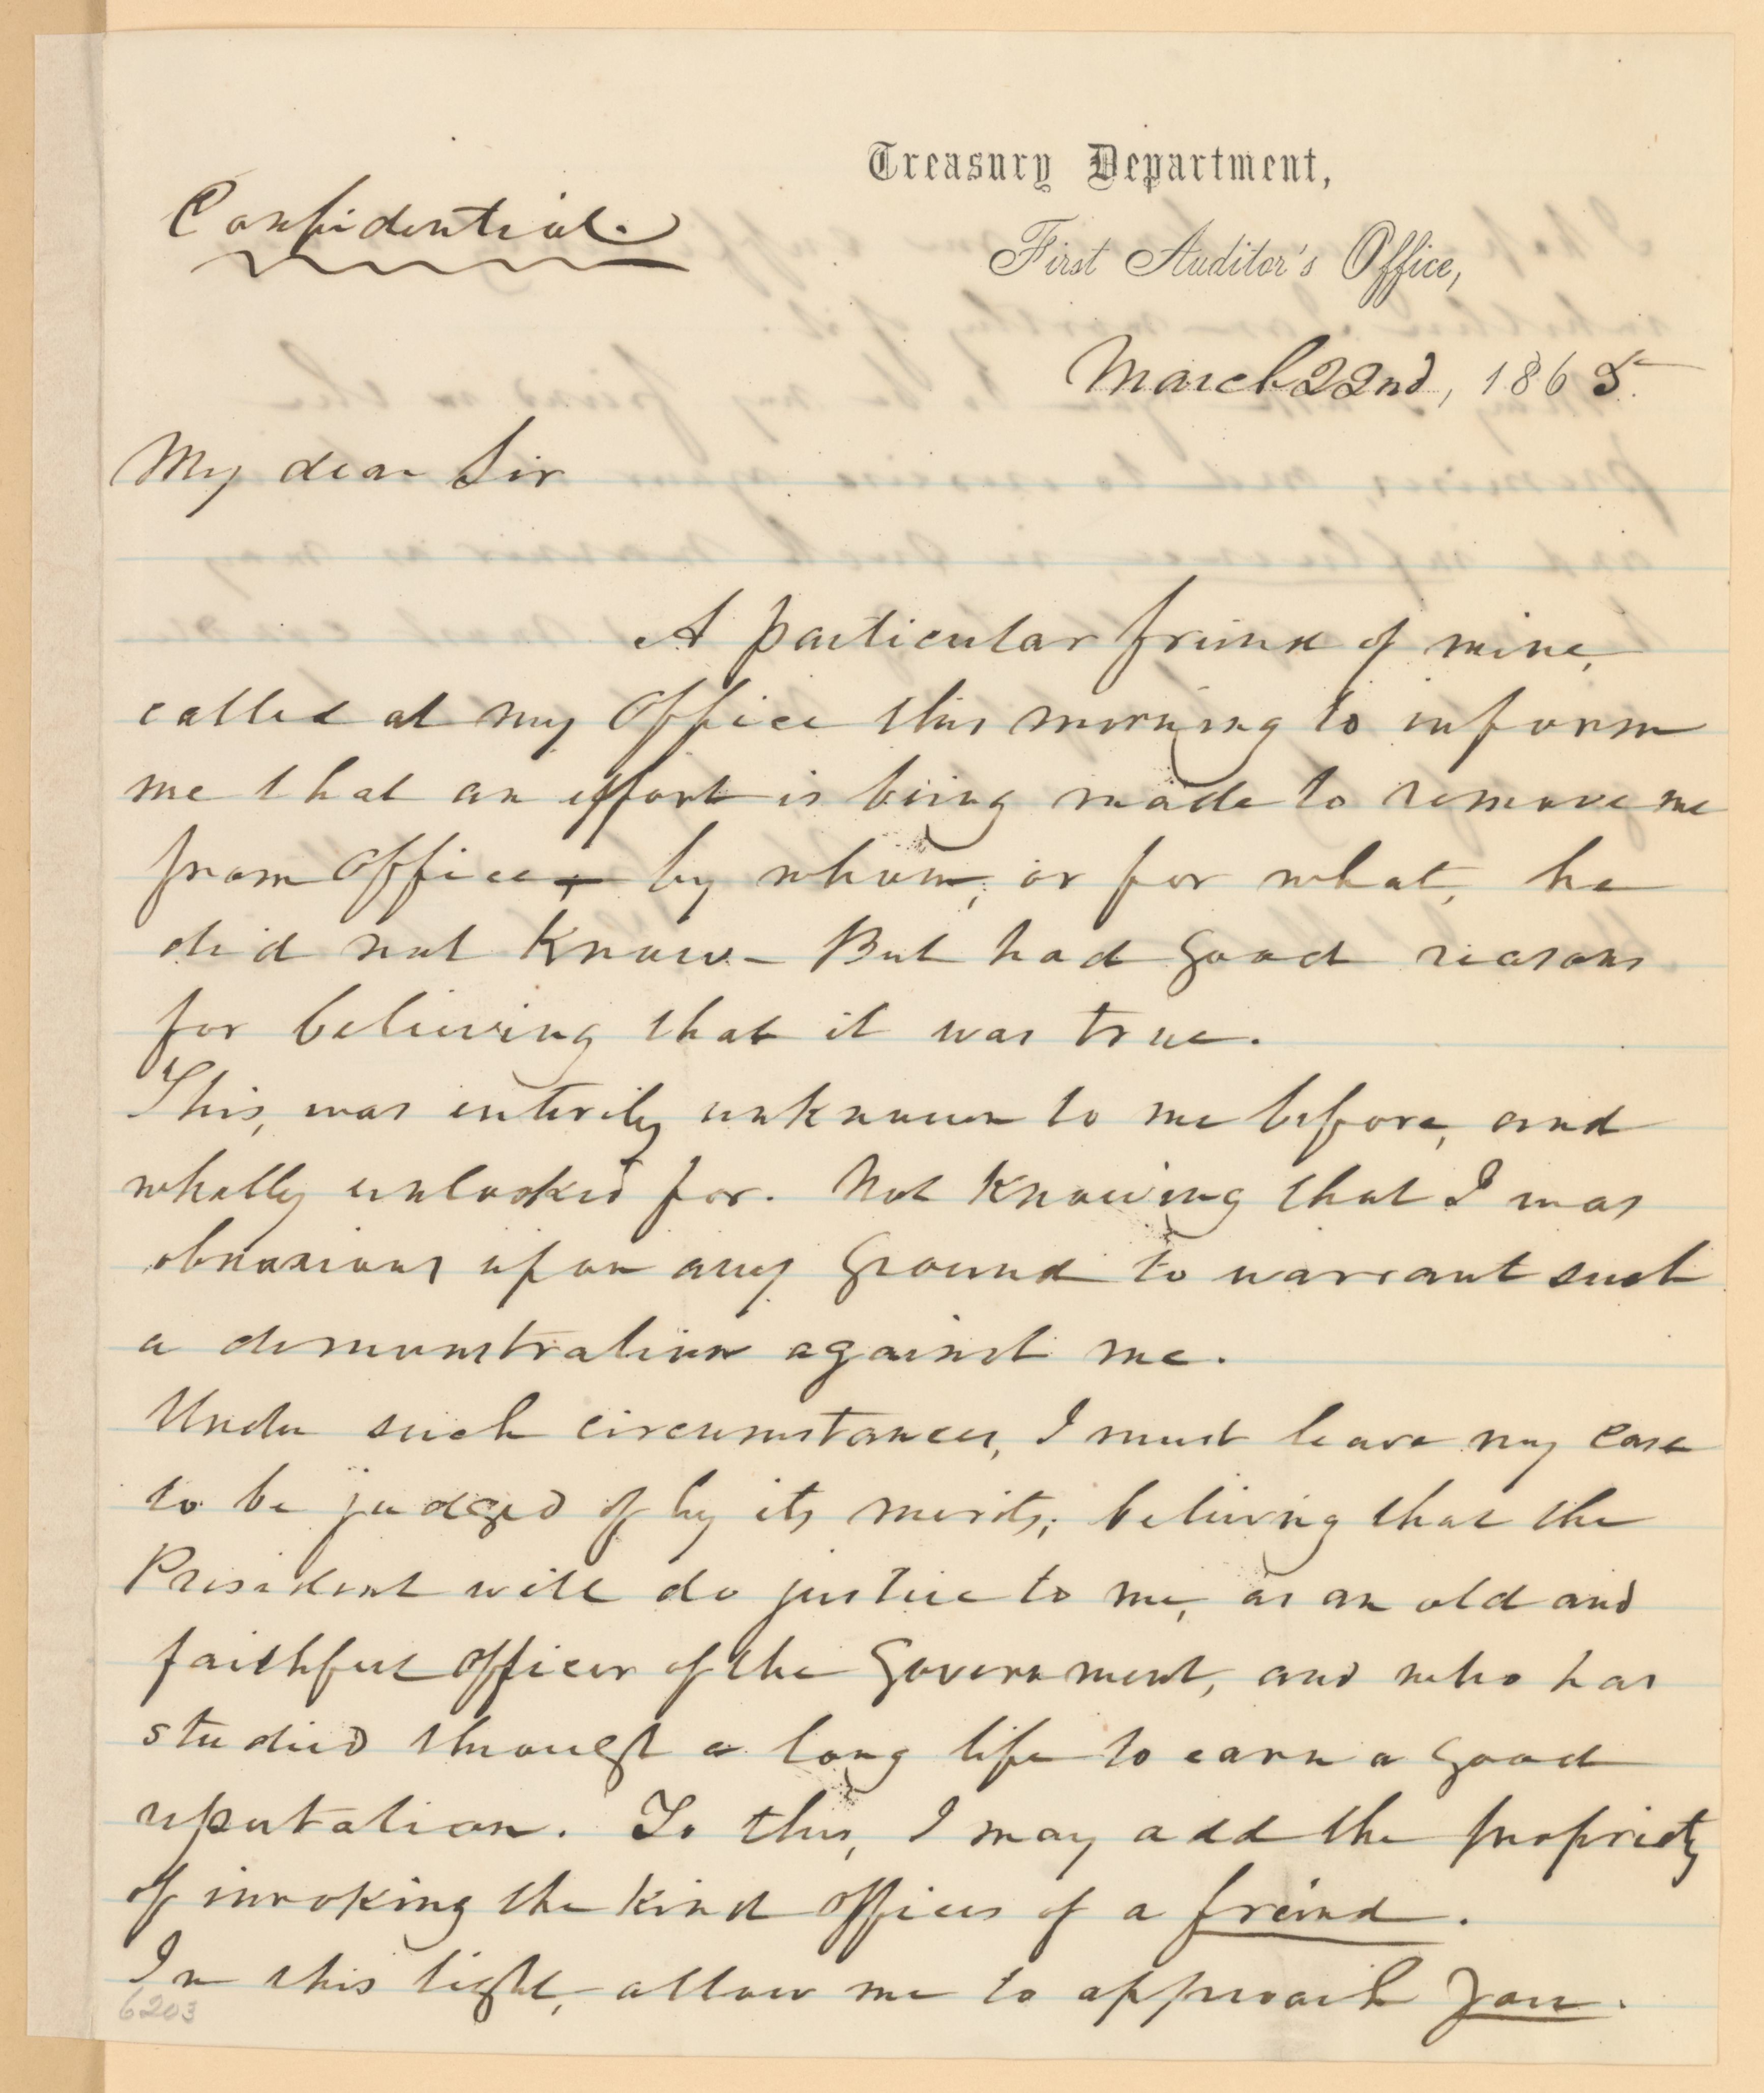 Treasury Department,
Confidential.
First Auditor's Office,
March 22nd, 1865.
My dear Sir
A particular friend of mine,
called at my Office this morning to inform
me that an effort is being made to remove me
from Office, — by whom, or for what, he
did not Know — But had good reasons
for believing that it was true.
This, was entirely unknown to me before, and
wholly unlooked for. Not Knowing that I was
obnoxious upon any ground to warrant such
a demonstration against me.
Under such circumstances, I must leave my case
to be judged of by its merits; believing that the
President will do justice to me, as an old and
faithful officer of the Government, and who has
studied through a long life to earn a good
reputation. To this, I may add the propriety
of invoking the Kind offices of a freind.
In this light, allow me to approach you.
6203